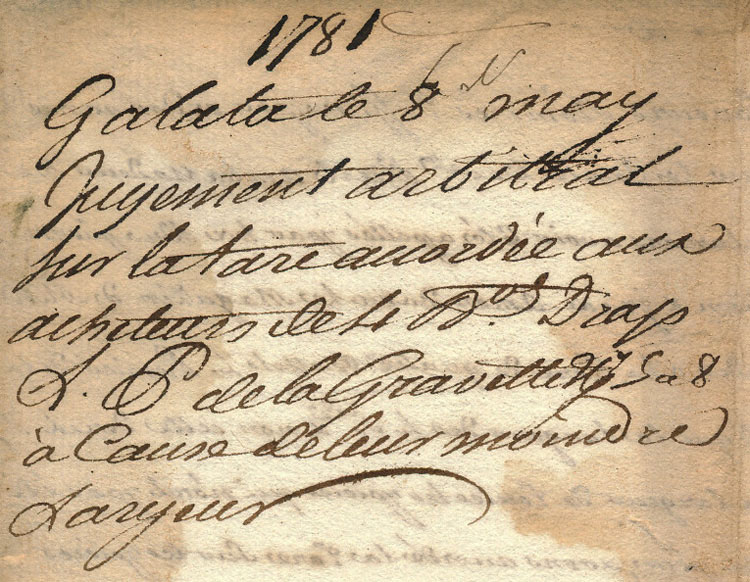 1781
Galata le 8 may
Jugement arbitral
sur la tare accordée aux
acheteurs de 4 B.ots Drap
L. P de la Gravette N° 5 a 8
à Cause de leur moindre
Largeur